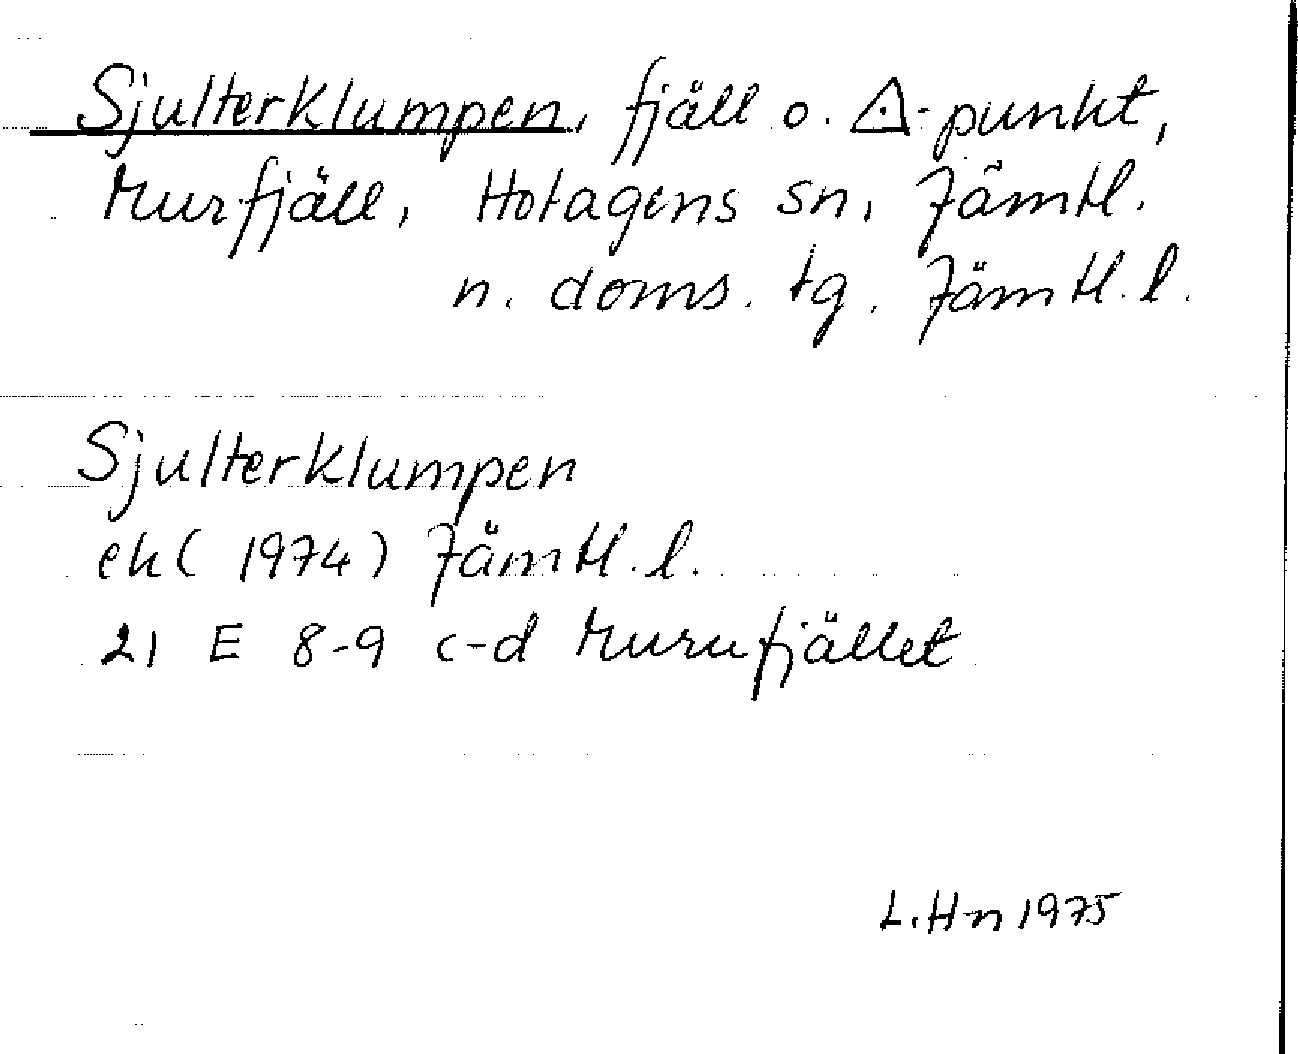 Sjulterklumpen, fjäll o. △-punkt,
Murfjäll, Hotagens sn, Jämtl.
n. doms. tg. Jämtl. l.
Sjulterklumpen
ek (1974) Jämtl. l.
21 E 8-9 c-d Murufjället
L. Hn 1975